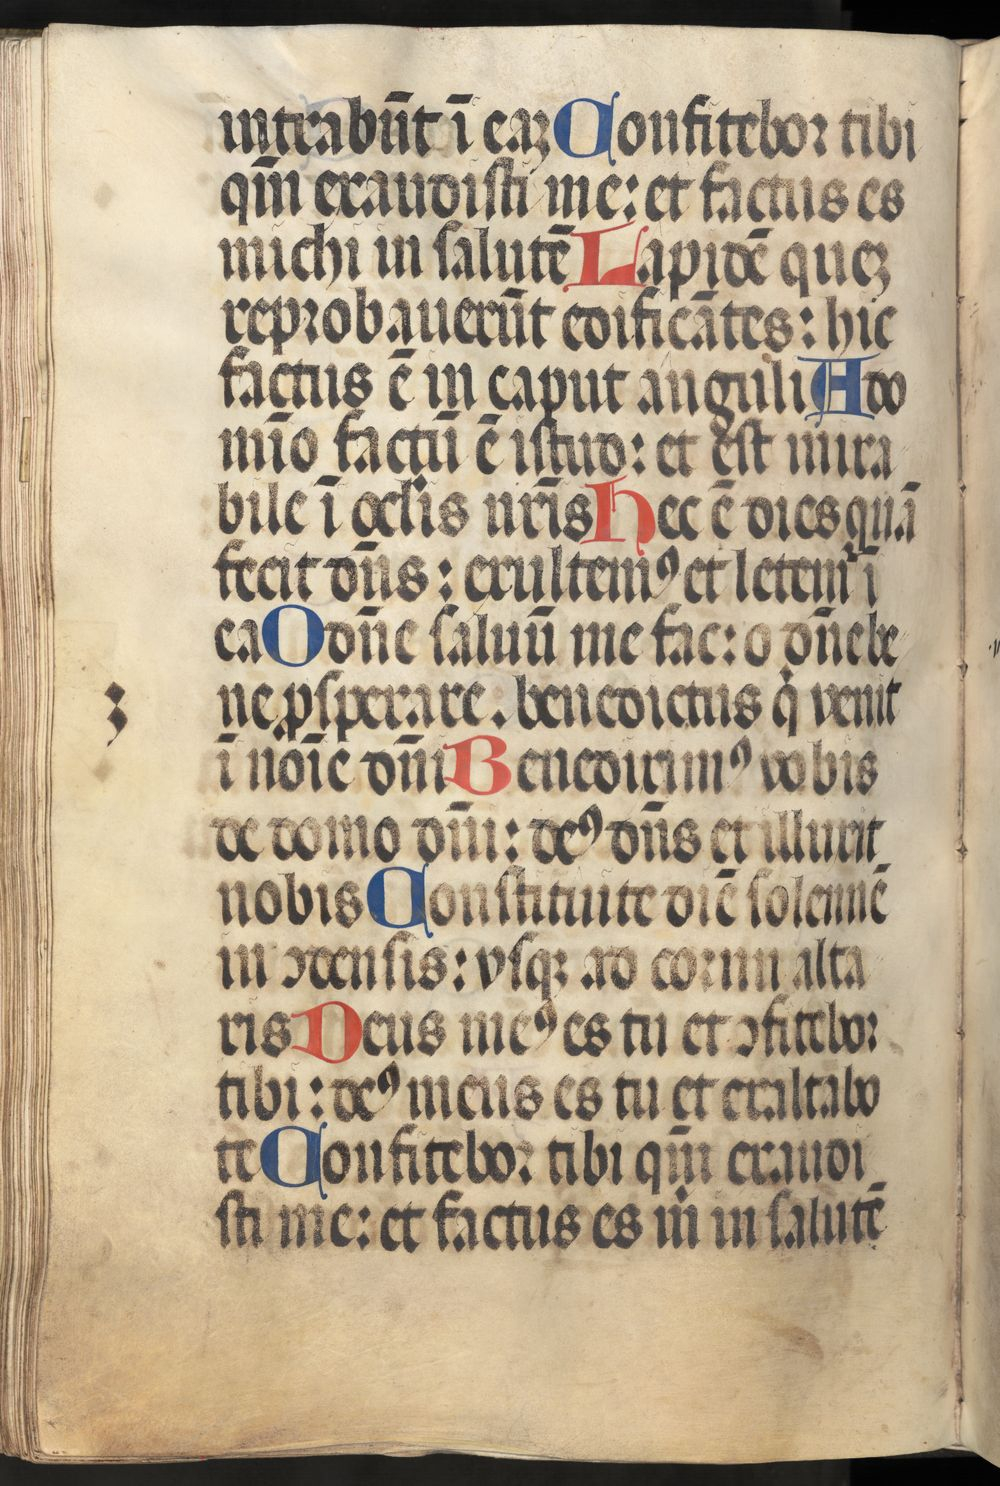 intrabūt ī eaʒ Confitebor tibi
qm̄ exaudisti me: et factus es
michi in salutē Lapidē queʒ
reprobauerūt edificātes: hic
factus ē in caput anguli A do
mīo factū ē istud: et est mira
bile ī oclis nr̄is Hec ē dies quā
fecit dn̄s: exultemꝰ et letemꝰ ī
ea O dn̄e saluū me fac: o dn̄e be
ne ꝓsperare. benedictus q̇ venit
ī noīe dn̄i Benediximꝰ vobis
de domo dn̄i: deꝰ dn̄s et illuxit
nobis Constituite diē solemnē
in ꝯdensis: vsqꝫ ad cornu alta
ris Deus meꝰ es tu et ꝯfitebor
tibi: deꝰ meus es tu et exaltabo
te Confitebor tibi qm̄ exaudi
sti me: et factus es ṁ in salutē